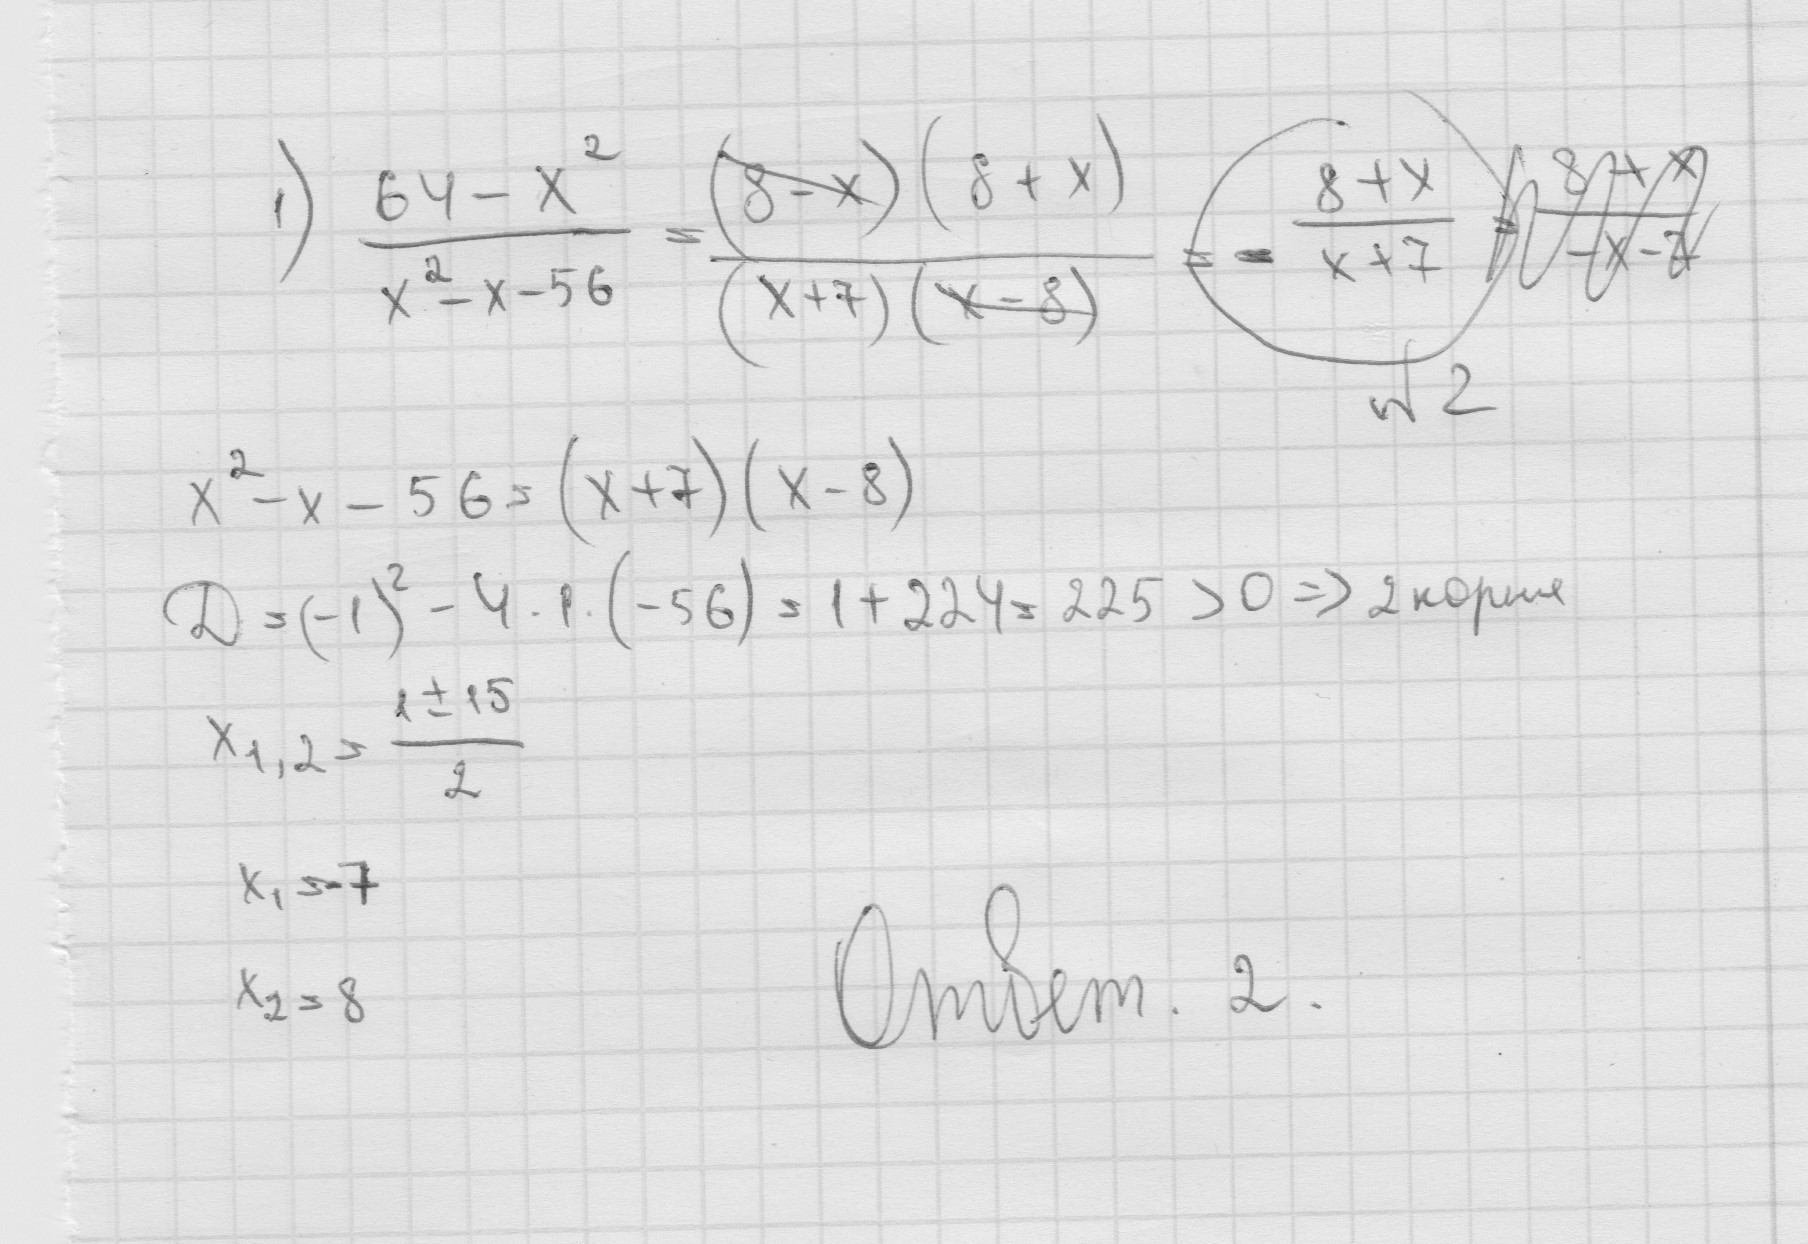 1) (64 - x²)/(x² - x - 56) = ((8 - x)(8 + x))/((x + 7)(x - 8)) = - (8 + x)/(x + 7) = (8 + x)/(-x - 7)
√2
x² - x - 56 = (x + 7)(x - 8)
D = (-1)² - 4 · 1 · (-56) = 1 + 224 = 225 > 0 => 2 корня
x₁,₂ = (1 ± 15)/2
x₁ = -7
x₂ = 8
Ответ. 2.